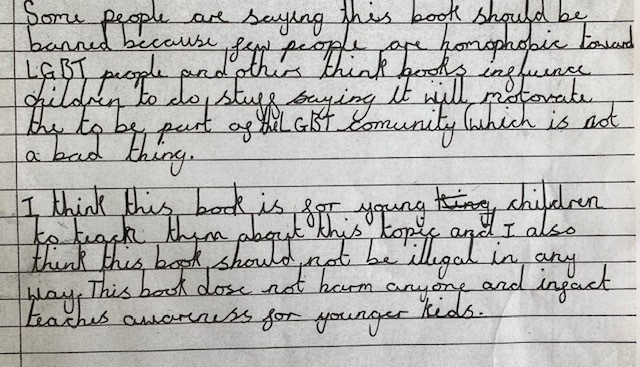 Some people are saying this book should be
banned because few people are homophobic toward
LGBT people and others think books influence
children to do stuff saying It will motovate
the to be part of the LGBT comunity (which is not
a bad thing.
I think this book is for young king children
to teach them about this topic and I also
think this book should not be illegal in any
way. This book dose not harm anyone and infact
teaches awareness for younger kids.